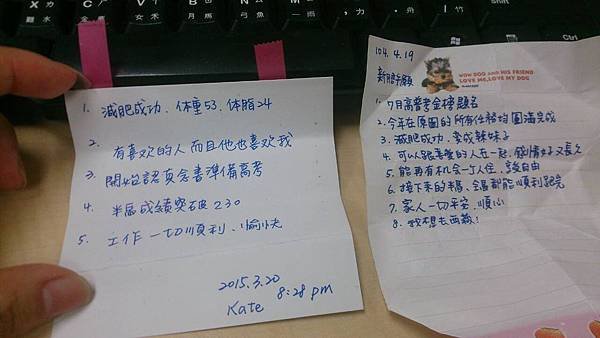 X ㄌ
C ㄏ
V ㄒ
B ㄖ
N ㄙ
M
Shift
難
水
金
女
月
弓
一
1. 減肥成功、体重53、体脂24
2. 有喜欢的人而且他也喜欢我
3. 開始認真念書準備高考
4. 半馬成績突破230
5. 工作一切順利、愉快
2015.3.20
Kate 8:28 pm
104.4.19
新月許願
WOW DOG AND HIS FRIEND
LOVE ME,LOVE MY DOG
1. 7月高普考金榜題名
2. 今年在原團的所有任務均圓滿完成
3. 減肥成功、变成辣妹子
4. 可以跟喜愛的人在一起,感情好又長久
5. 能再有机会一丁人住,享受自由
6. 接下來的半馬、全馬都能順利跑完
7. 家人一切平安、順心
8. 我想去西藏!